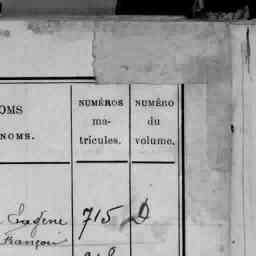 OMS
NOMS.
NUMÉROS
ma-
tricules.
NUMÉRO
du
volume.
Eugène 715 D
François